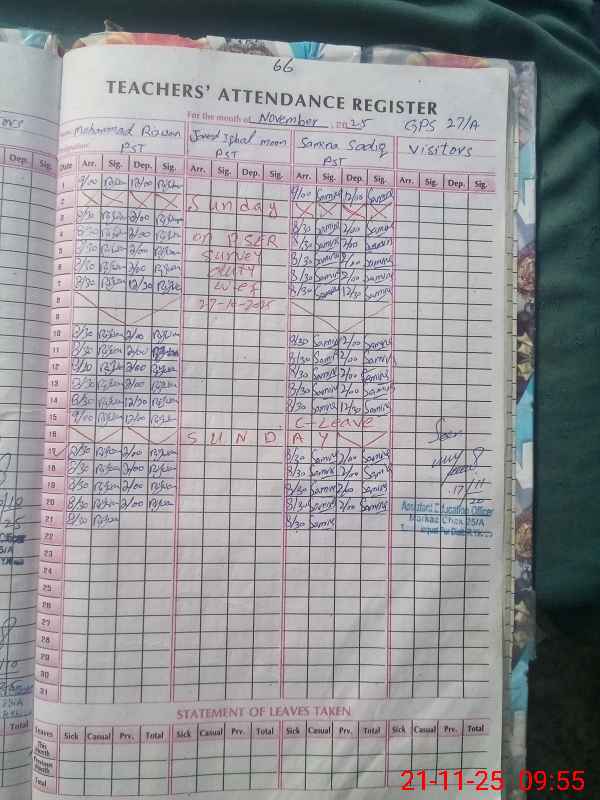 66
TEACHERS' ATTENDANCE REGISTER
For the month of November, 2025 GPS 27/A
Mohammad Rizwan Javed Iqbal moon Samina Sadiq Visitors
PST PST PST
Date Arr. Sig. Dep. Sig. Arr. Sig. Dep. Sig. Arr. Sig. Dep. Sig. Arr. Sig. Dep. Sig.
1 9/00 Rizwan 12/00 Rizwan 9/00 Samina 12/00 Samina
2 Sunday
3 8/30 Rizwan 2/00 Rizwan 8/30 Samina 2/00 Samina
4 8/30 Rizwan 2/00 Rizwan on PSER 8/30 Samina 2/00 Samina
5 8/30 Rizwan 2/00 Rizwan Survey 8/30 Samina 2/00 Samina
6 8/30 Rizwan 2/00 Rizwan duty 8/30 Samina 2/00 Samina
7 8/30 Rizwan 12/30 Rizwan wef 8/30 Samina 12/30 Samina
8 27-10-2025
9
10 8/30 Rizwan 2/00 Rizwan 8/30 Samina 2/00 Samina
11 8/30 Rizwan 2/00 Rizwan 8/30 Samina 2/00 Samina
12 8/30 Rizwan 2/00 Rizwan 8/30 Samina 2/00 Samina
13 8/30 Rizwan 2/00 Rizwan 8/30 Samina 2/00 Samina
14 8/30 Rizwan 12/30 Rizwan 8/30 Samina 12/30 Samina
15 9/00 Rizwan 12/00 Rizwan C-Leave
16 SUNDAY
17 8/30 Rizwan 2/00 Rizwan 8/30 Samina 2/00 Samina
18 8/30 Rizwan 2/00 Rizwan 8/30 Samina 2/00 Samina
19 8/30 Rizwan 2/00 Rizwan 8/30 Samina 2/00 Samina
20 8/30 Rizwan 2/00 Rizwan 8/30 Samina 2/00 Samina
21 8/30 Rizwan 8/30 Samina
Seen
17/11
Assistant Education Officer
Markaz Chak 25/A
22
23
24
25
26
27
28
29
30
31
STATEMENT OF LEAVES TAKEN
Leaves Sick Casual Prv. Total Sick Casual Prv. Total Sick Casual Prv. Total Sick Casual Prv. Total
This Month
Previous Month
Total
21-11-25 09:55